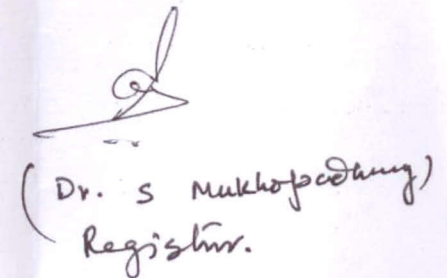 (Dr. S Mukhopadhyay)
Registrar.